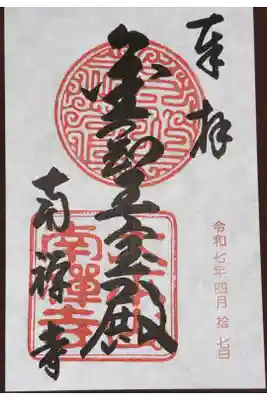 奉拝
令和七年四月拾七日
金剛王宝殿
南禅寺
南禪寺